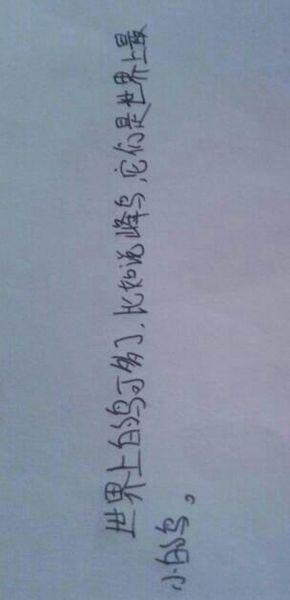 世界上的鸟可多了,比如说峰鸟,它们是世界上最
小的鸟。